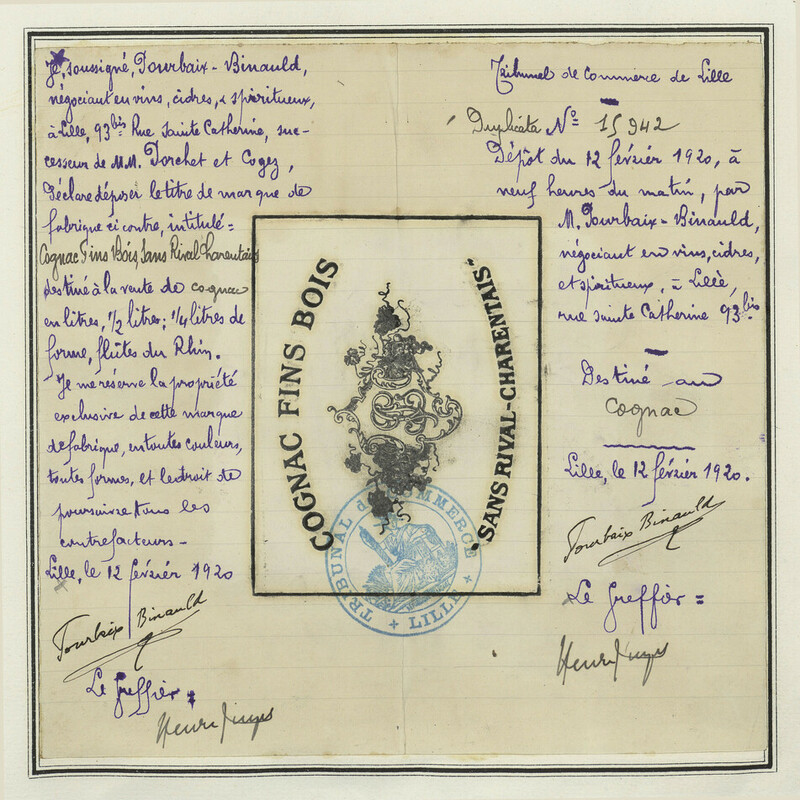 Je, soussigné, Tourbaix-Binauld,
négociant en vins, cidres, & spiritueux,
à Lille, 93bis Rue Sainte Catherine, suc-
cesseur de MM. Porchet et Cogez,
Déclare déposer le titre de marque de
fabrique ci contre, intitulé=
Cognac Fins Bois, Sans Rival Charentais
destiné à la vente de cognac
en litres, 1/2 litres; 1/4 litres de
forme, flûtes du Rhin.
Je me réserve la propriété
exclusive de cette marque
de fabrique, en toutes couleurs,
toutes formes, et le droit de
poursuivre tous les
contrefacteurs-
Lille, le 12 février 1920
Tourbaix Binauld
Le Greffier
COGNAC FINS BOIS
"SANS RIVAL-CHARENTAIS"
TRIBUNAL de COMMERCE
+ LILLE +
Tribunal de Commerce de Lille
Duplicata No= 15942
Dépôt du 12 février 1920, à
neuf heures du matin, par
M. Tourbaix-Binauld,
négociant en vins, cidres,
et spiritueux, à Lille,
rue Sainte Catherine 93bis
Destiné au
cognac
Lille, le 12 février 1920.
Tourbaix Binauld
Le Greffier =